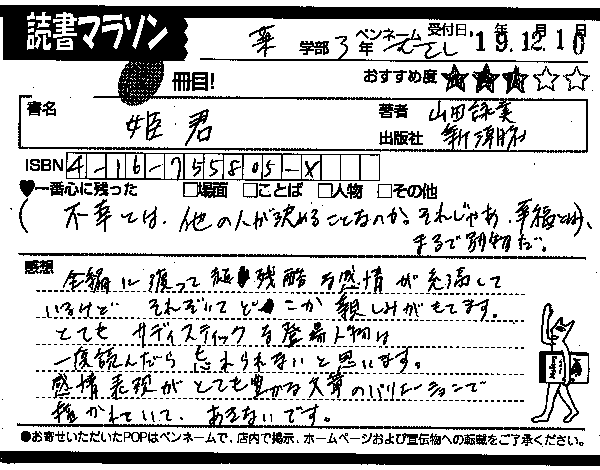 読書マラソン
薬 学部 3年 ペンネーム むさし 受付日 '19年12月10日
冊目! おすすめ度 ★★★☆☆
書名 姫君 著者 山田詠美
出版社 新潮社
ISBN 4-16-755805-X
♥一番心に残った □場面 □ことば □人物 □その他
(不幸とは、他の人が決めることなのか。それじゃあ、幸福とは、
まるで別物だ。
感想 全編に渡って 残酷な感情が充満して
いるけど それでいてどこか親しみがもてます。
とてもサディスティックな登場人物は
一度読んだら忘れられないと思います。
感情表現がとても豊かな文章のバリエーションで
描かれていて、あきないです。
●お寄せいただいたPOPはペンネームで、店内で掲示、ホームページおよび宣伝物への転載をご了承ください。